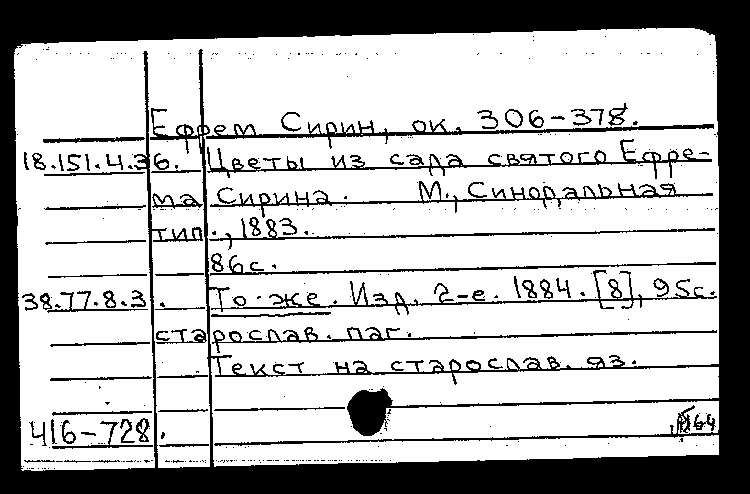 Ефрем Сирин, ок. 306-378.
18.151.4.36. Цветы из сада святого Ефре-
ма Сирина. М., Синодальная
тип., 1883.
86с.
38.77.8.3. То же. Изд. 2-е. 1884. [8], 95с.
старослав. паг.
Текст на старослав. яз.
416-728. 64